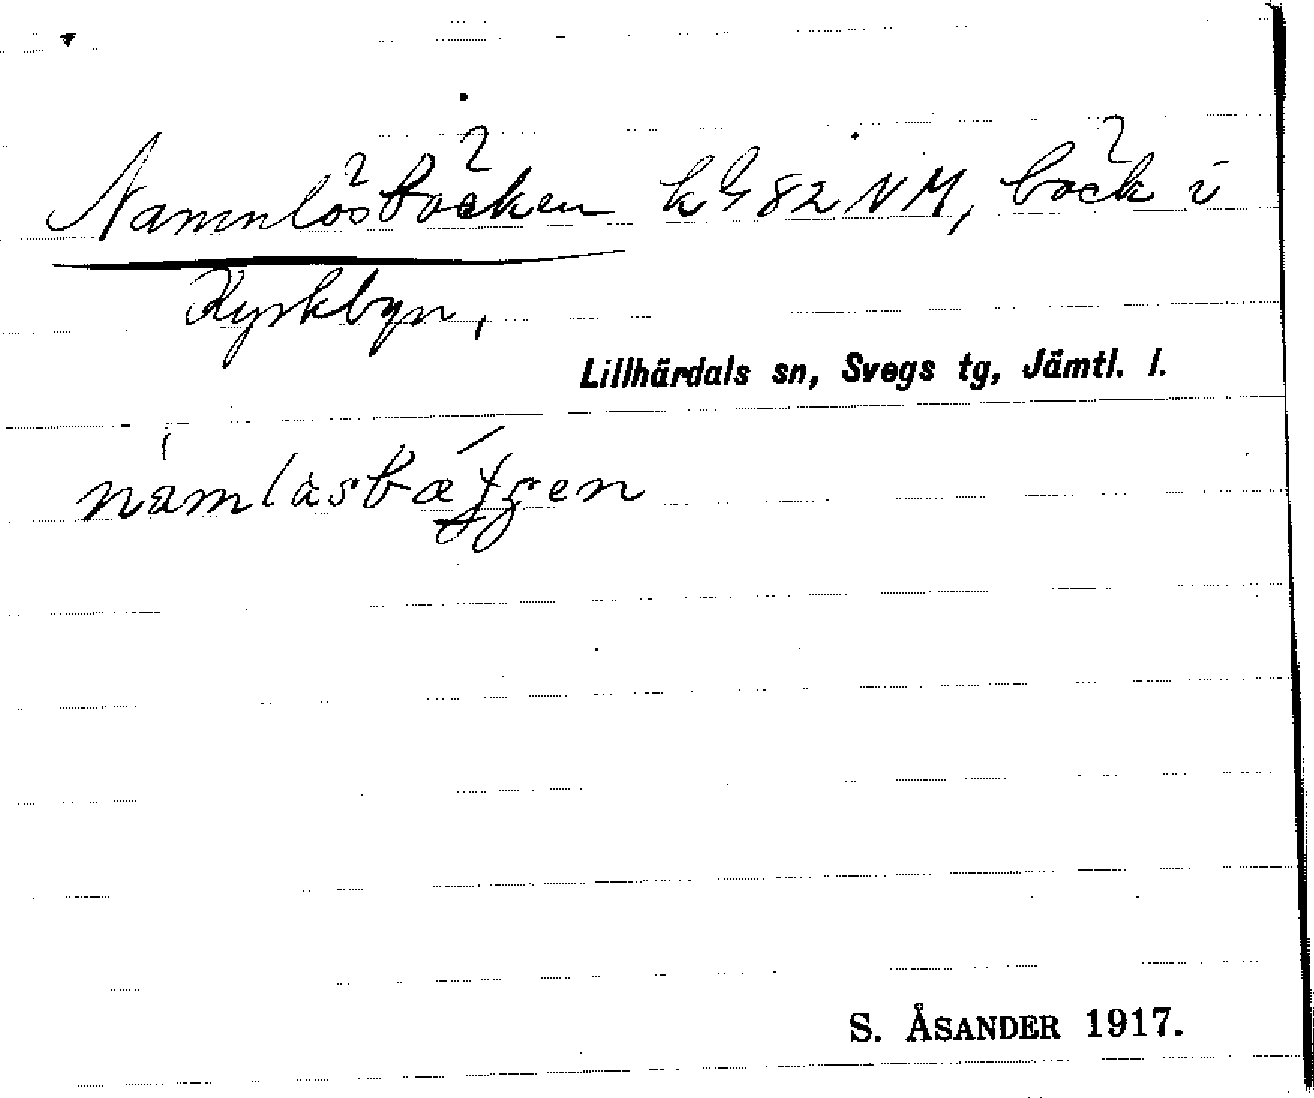 Namnlösbäcken kG 82 NM, bäck i
Kyrkbyn,
Lillhärdals sn, Svegs tg, Jämtl. l.
S. ÅSANDER 1917.